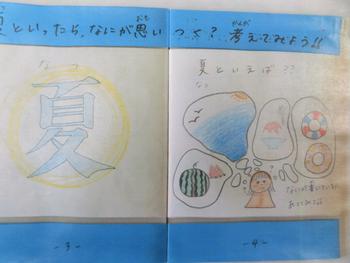 夏といったら、なにが思いつく?考えてみよう!!
なつ
夏
-3-
夏といえば??
なつ
-4-